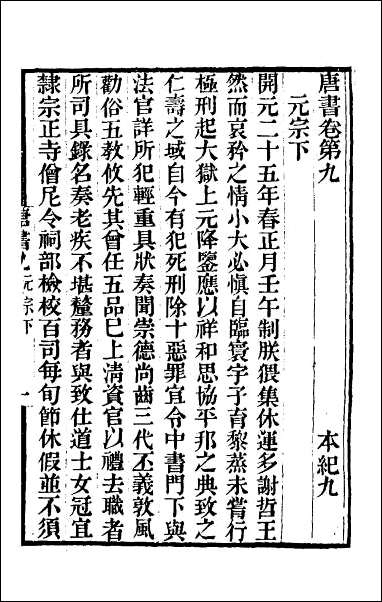 唐書卷第九　本紀九
元宗下
開元二十五年春正月壬午制朕猥集休運多謝哲王
然而哀矜之情小大必慎自臨寰宇子育黎蒸未嘗行
極刑起大獄上元降鑒應以祥和思協平邦之典致之
仁壽之域自今有犯死刑除十惡罪宜令中書門下與
法官詳所犯輕重具狀奏聞崇德尚齒三代丕義敦風
勸俗五教攸先其曾任五品巳上清資官以禮去職者
所司具錄名奏老疾不堪釐務者與致仕道士女冠宜
隸宗正寺僧尼令祠部檢校百司每旬節休假並不須
唐書九元宗下　一